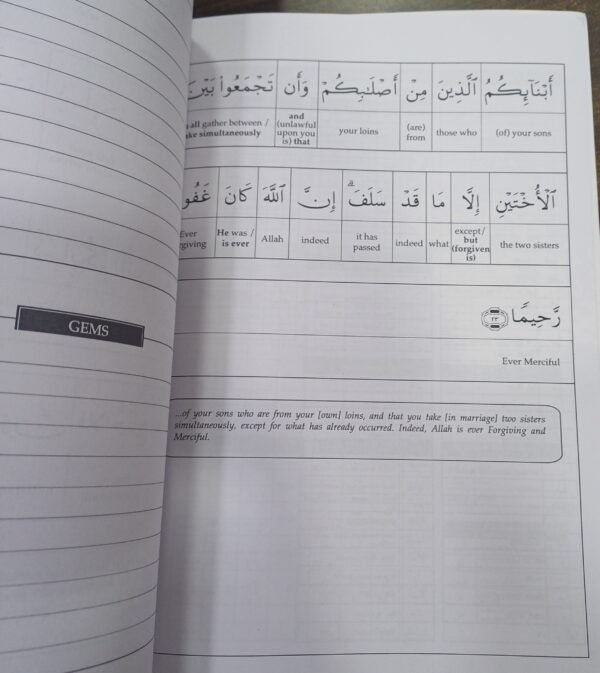 أَبْنَآئِكُمُ ٱلَّذِينَ مِنْ أَصْلَـٰبِكُمْ وَأَن تَجْمَعُوا۟ بَيْنَ
(of) your sons
those who
(are)
from
your loins
and
(unlawful
upon you
is) that
all gather between /
simultaneously
ٱلْأُخْتَيْنِ إِلَّا مَا قَدْ سَلَفَ ۗ إِنَّ ٱللَّهَ كَانَ
the two sisters
except/
but
(forgiven
is)
what
indeed
it has
passed
indeed
Allah
He was /
is ever
Ever
رَّحِيمًا ٢٣
Ever Merciful
GEMS
...of your sons who are from your [own] loins, and that you take [in marriage] two sisters
simultaneously, except for what has already occurred. Indeed, Allah is ever Forgiving and
Merciful.